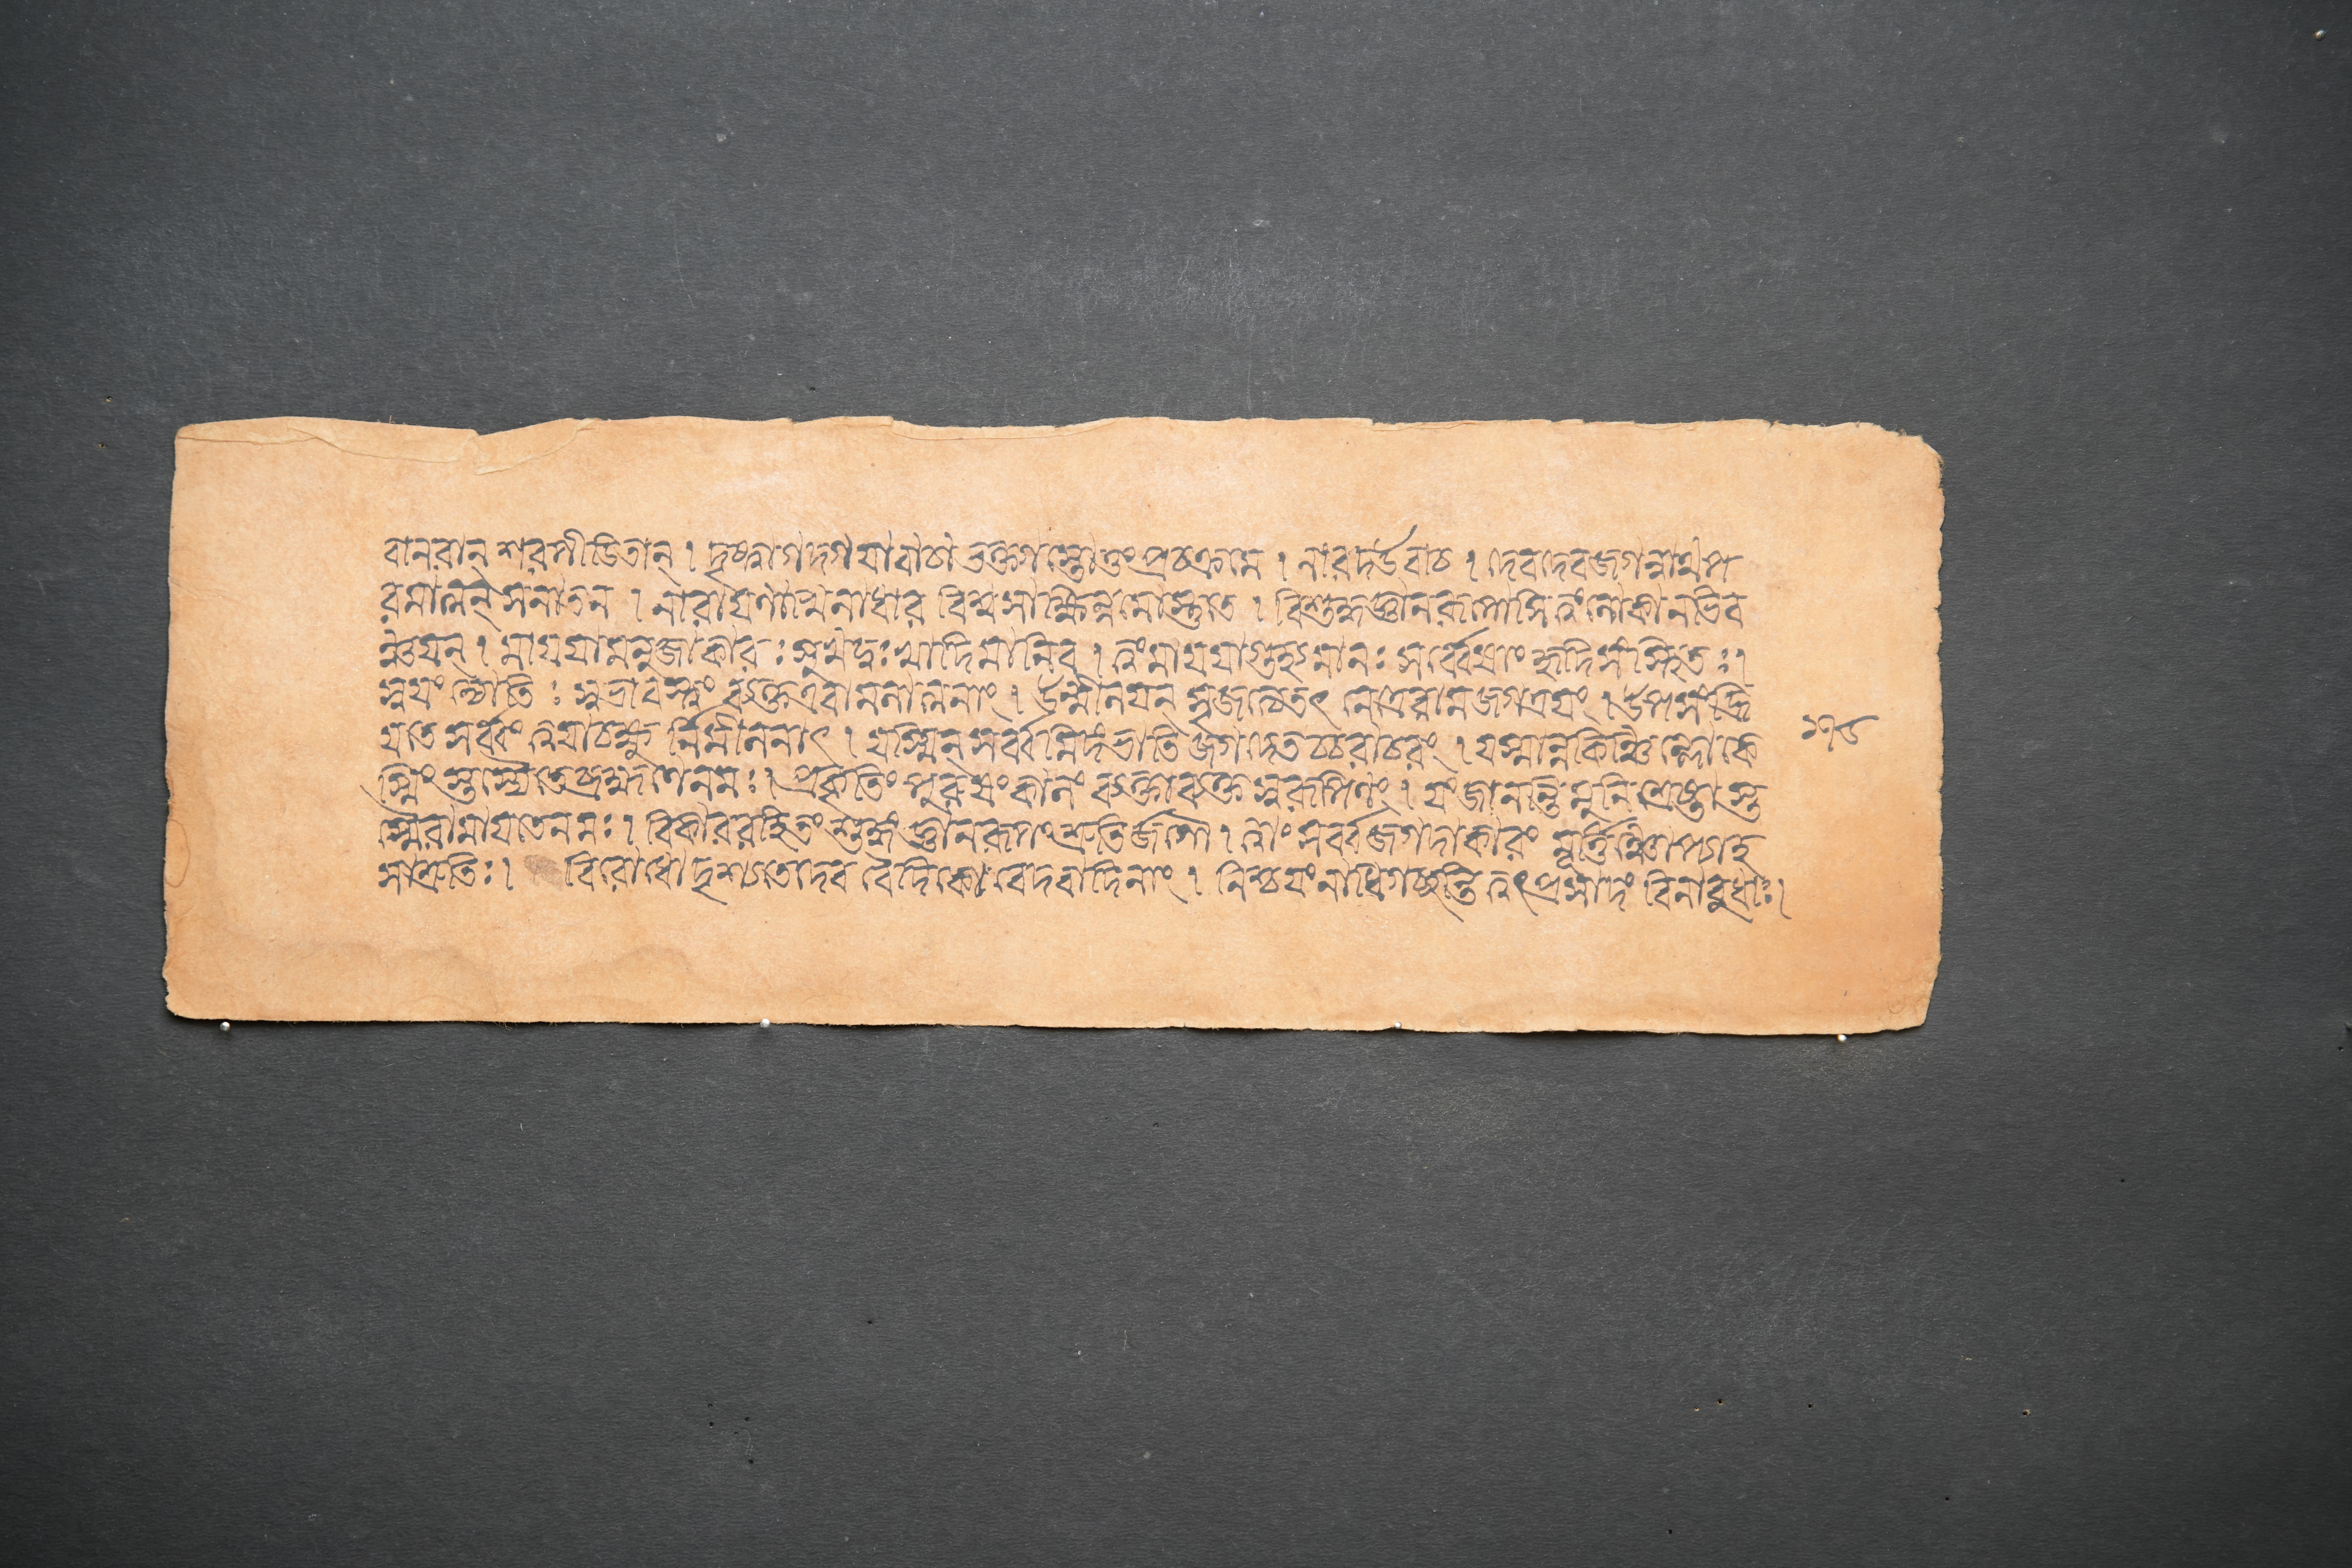 বানরান্ শরপীডিতান্ । দৃষ্ট্বা গদ্গদযা বাচা ভক্ত্যা স্তোতুং প্রচক্রমে । নারদ উবাচ । দেবদেব জগন্নাথ প
রমাত্মন্ সনাতন । নারাযণাখিলাধার বিশ্বসাক্ষিন্নমোস্তুতে । বিশুদ্ধজ্ঞানরূপোসি ত্বং লোকানতিব
ঞ্চযন্ । মাযযা মনুজাকারঃ সুখদুঃখাদিমানিব । ত্বং মাযযা গুহ্যমানঃ সর্ব্বেষাং হৃদি সংস্থিতঃ ।
স্বযং জ্যোতিঃ স্বভাবস্ত্বং ব্যক্ত এবামলাত্মনাং । উন্মীলযন্ সৃজস্যেতৎ নেত্রে রাম জগত্রযং । উপসংহ্রি
যতে সর্ব্বং ত্বযা চক্ষু র্নিমীলনাৎ । যস্মিন্ সর্ব্বমিদং ভাতি জগদেতচ্চরাচরং । যস্মান্ন কিঞ্চিল্লোকে
স্মিং স্তস্মৈ তে ব্রহ্মণে নমঃ । প্রকৃতিং পুরুষং কালং ব্যক্তাব্যক্ত স্বরূপিণং । যং জানন্তি মুনিশ্রেষ্ঠা স্ত
স্মৈ রামাযতে নমঃ । বিকাররহিতং শুদ্ধং জ্ঞানরূপং শ্রুতির্জগৌ । ত্বাং সর্ব্বজগদাকারং মূর্ত্তিঞ্চাপ্যাহ
সা শ্রুতিঃ । বিরোধো দৃশ্যতে দেব বৈদিকো বেদবাদিনাং । নিশ্চযং নাধিগচ্ছন্তি ত্বৎপ্রসাদং বিনা বুধাঃ ।